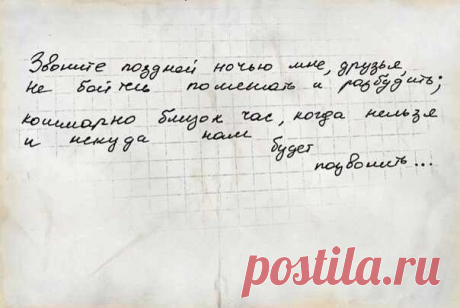 Звоните поздней ночью мне, друзья,
не бойтесь помешать и разбудить;
кошмарно близок час, когда нельзя
и некуда нам будет
позвонить...
postila.ru